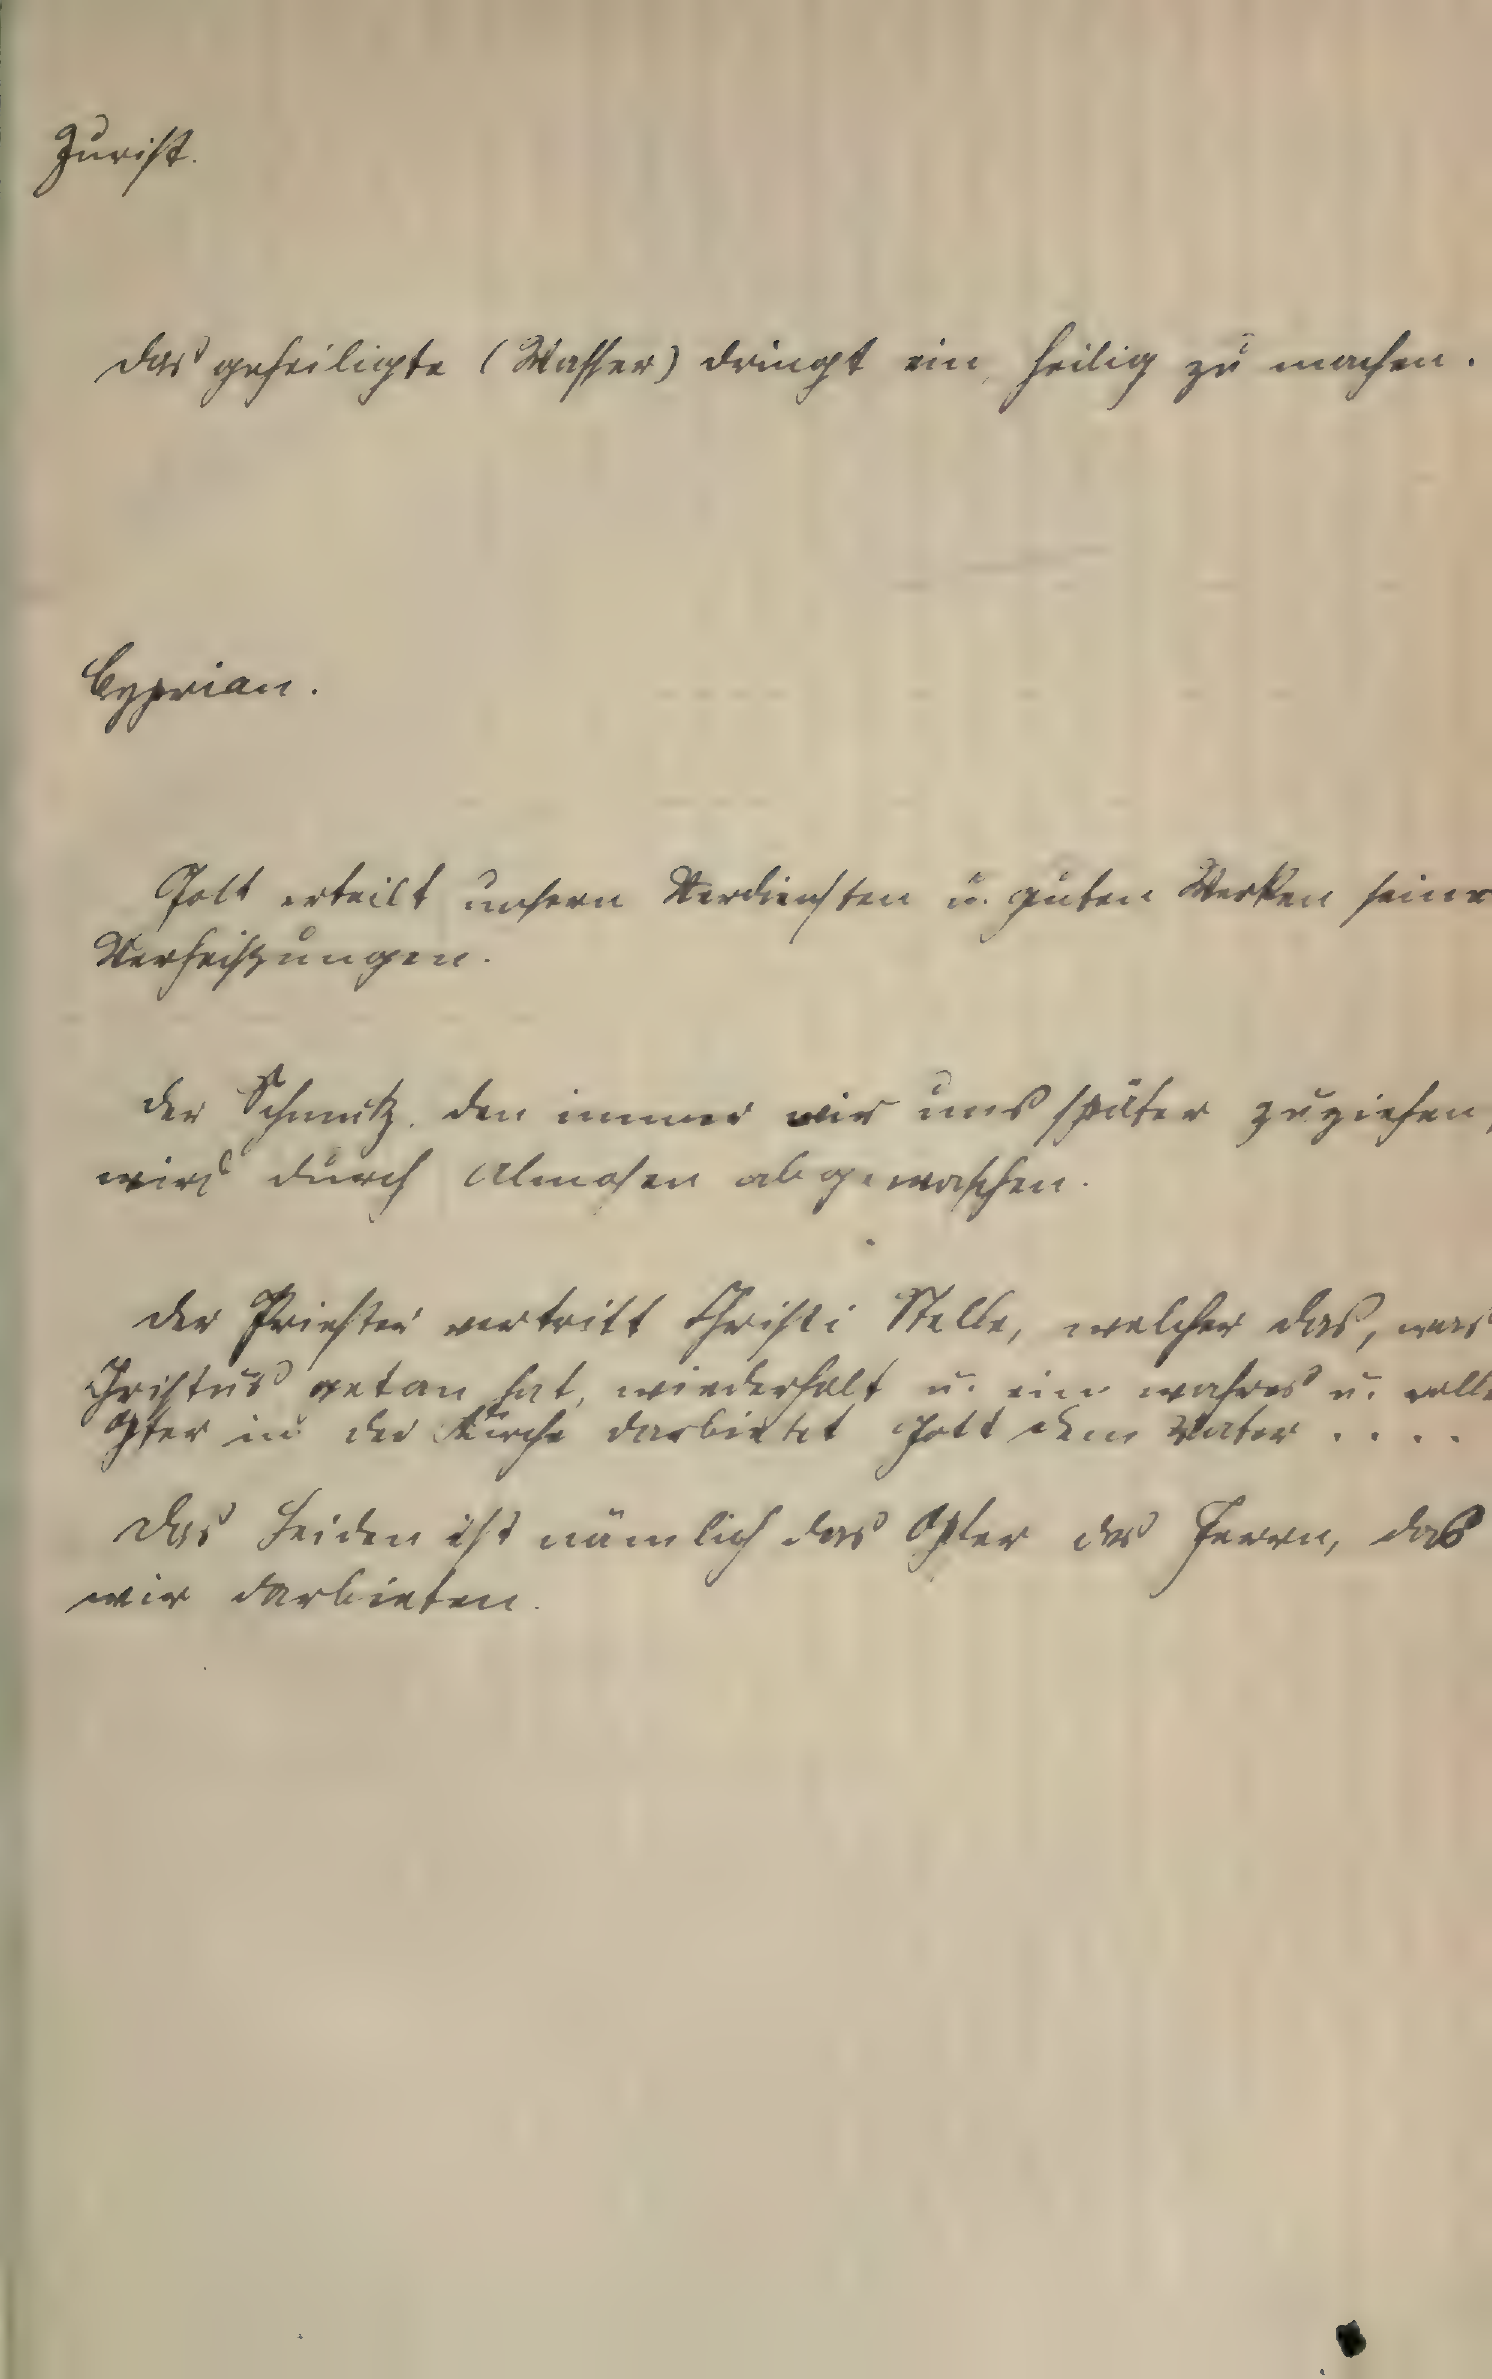 Jurist.
das geheiligte (Wasser) dringt ein, heilig zu machen.
Cyprian.
Gott erteilt unsern Verdiensten u. guten Werken seine
Verheißungen.
der Schmutz, den immer wir uns später zuziehen,
wird durch Almosen abgewaschen.
der Priester vertritt Christi Stelle, welcher das, was
Christus getan hat, wiederholt u. ein wahres u. volle
Opfer in der Kirche darbietet Gott dem Vater ....
das Leiden ist nämlich das Opfer des Herrn, das
wir darbieten.